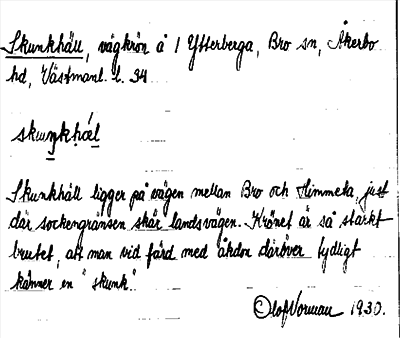 Skunkhäll, vägkrön å 1 Ytterberga, Bro sn, Åkerbo
hd, Västmanl. l. 34
skuŋkhæ̀l
Skunkhäll ligger på vägen mellan Bro och Himmeta, just
där sockengränsen skär landsvägen. Krönet är så starkt
brutet, att man vid färd med åkdon däröver tydligt
känner en "skunk"
Olof Norman 1930.